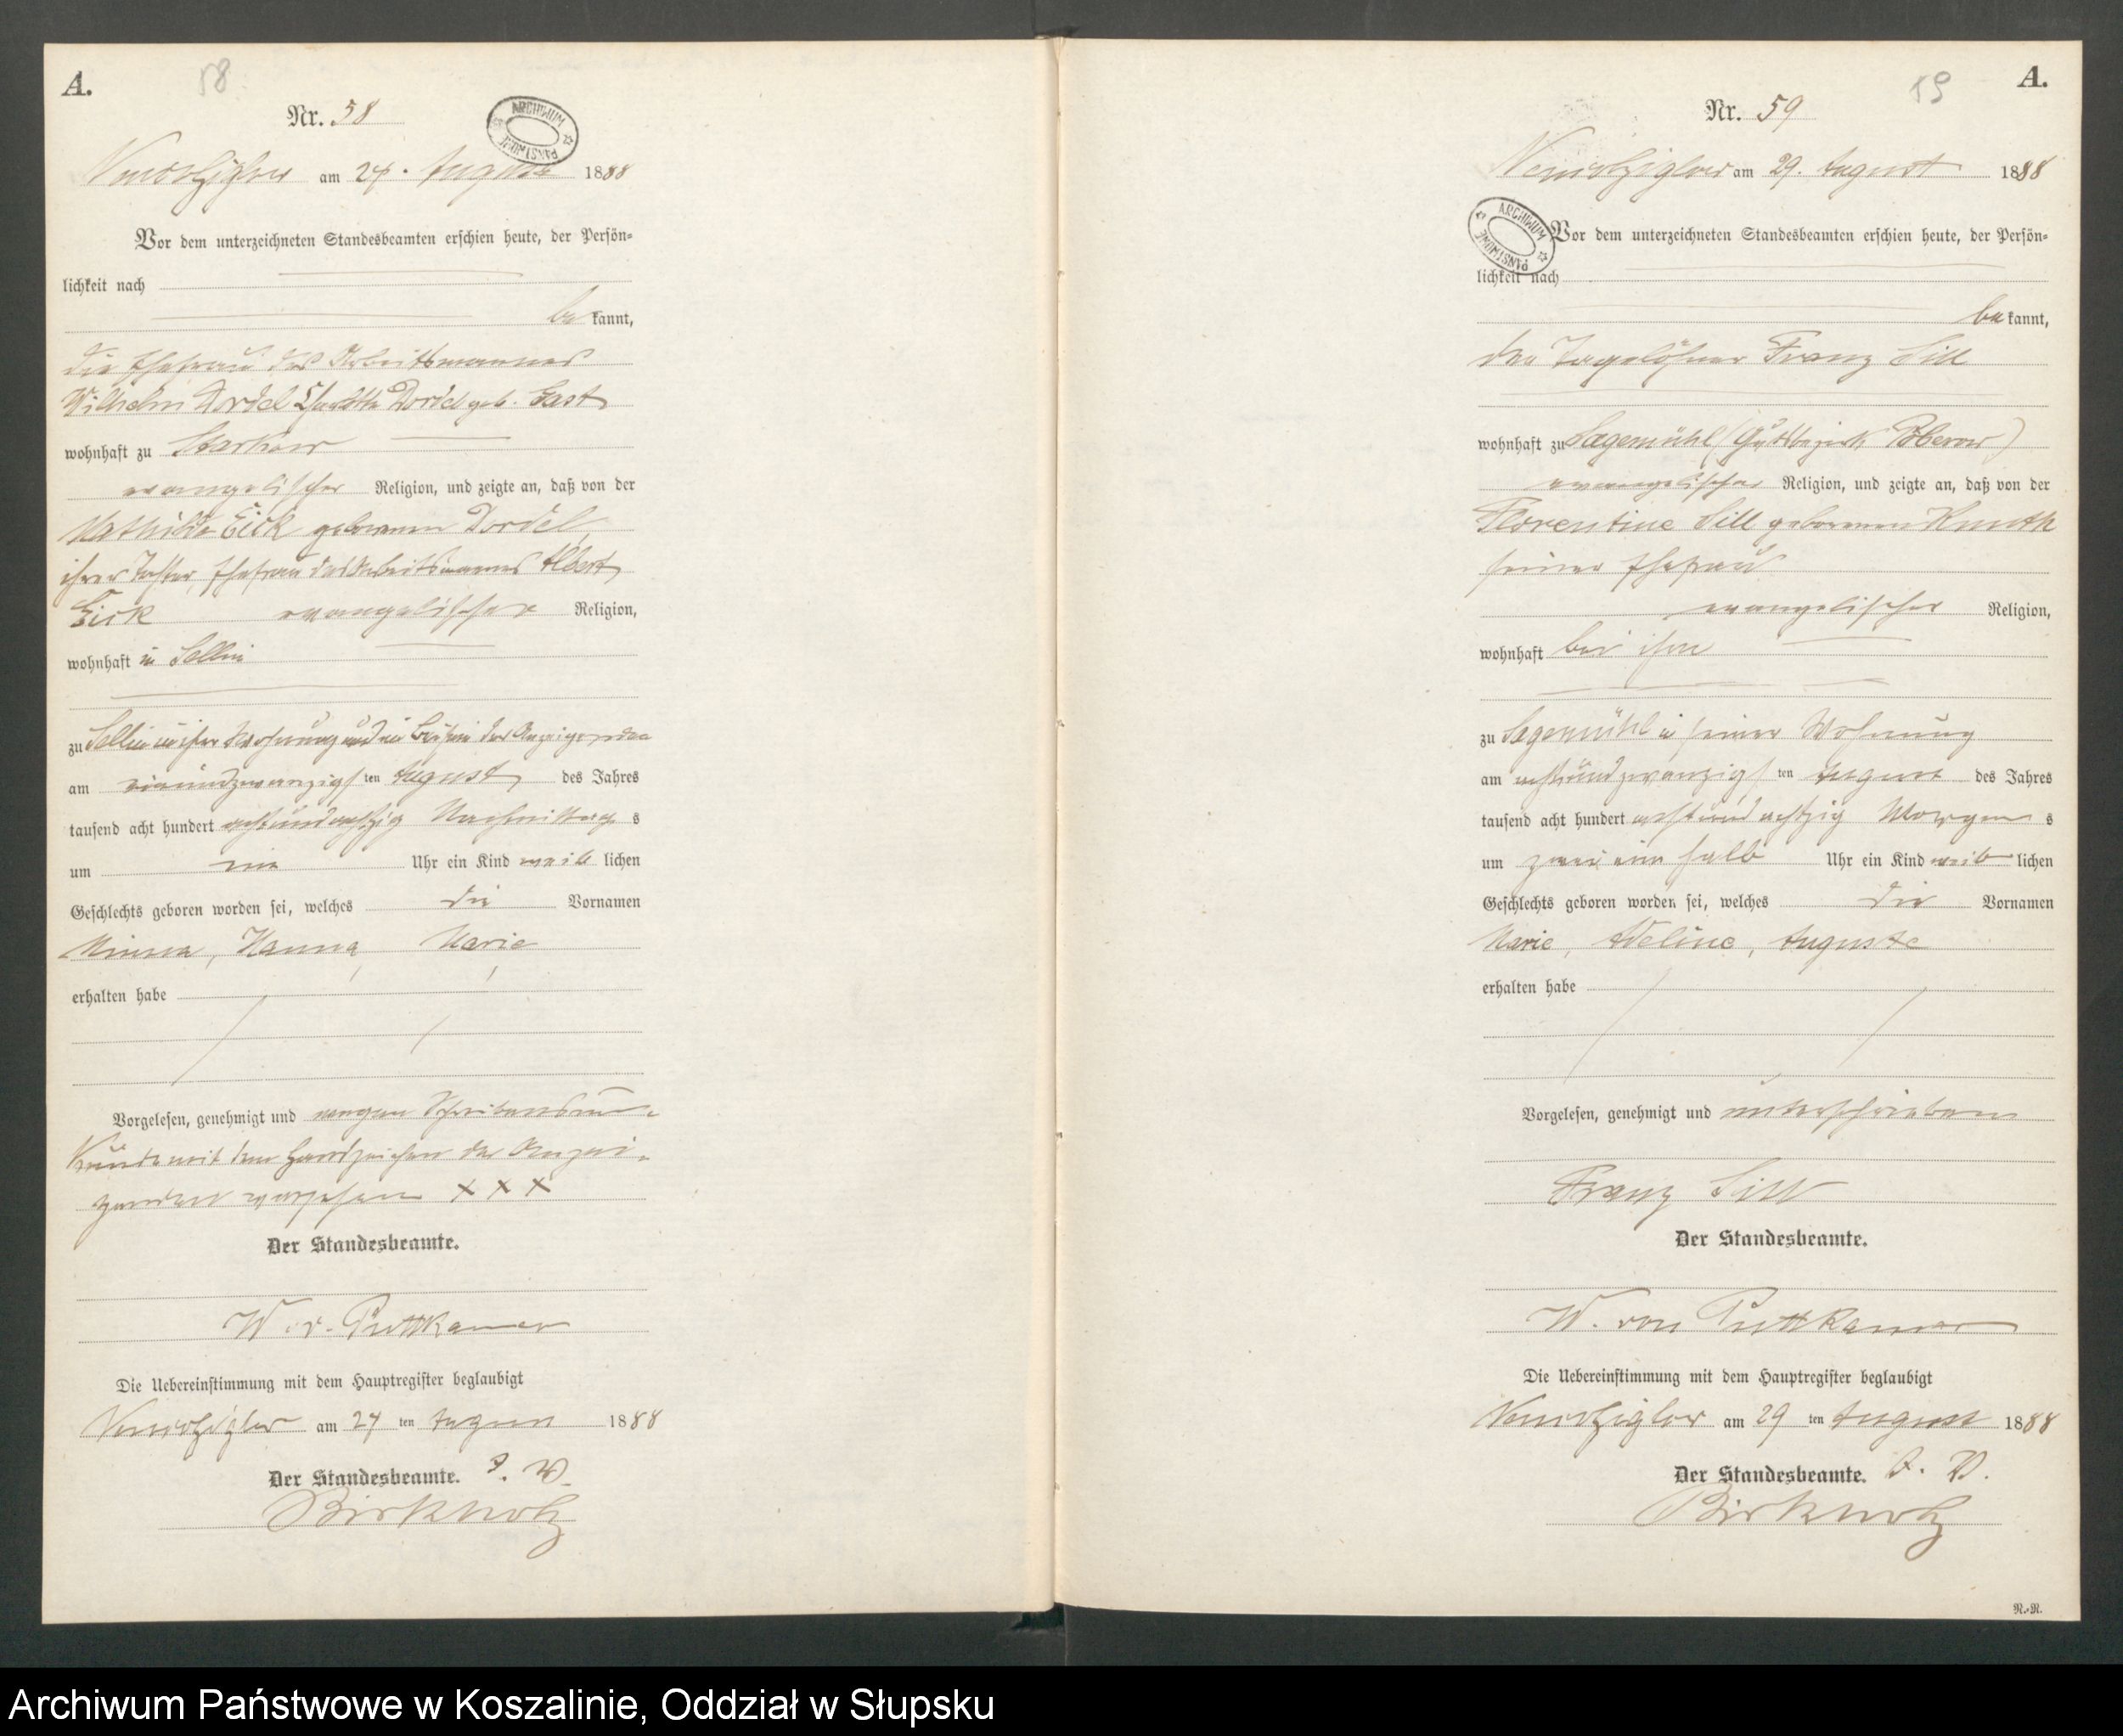 A.
58
Nr. 58
ARCHIWUM PAŃSTWOWE
am 24. August 1888
Vor dem unterzeichneten Standesbeamten erschien heute, der Persön-
lichkeit nach
be kannt,
die Ehefrau des Arbeitsmannes
Wilhelm Dordel Charlotte Dordel geb. Gast
wohnhaft zu Starkow
evangelischer Religion, und zeigte an, daß von der
Mathilde Eick geborenen Dordel,
ihrer Tochter, Ehefrau des Arbeitsmannes Albert
Eick evangelischer Religion,
wohnhaft in Sellin
zu Sellin in ihrer Wohnung und in Beisein der Anzeigenden
am einundzwanzigsten August des Jahres
tausend acht hundert achtundachtzig Nachmittags
um ein Uhr ein Kind weiblichen
Geschlechts geboren worden sei, welches die Vornamen
Minna, Hanna, Marie
erhalten habe
Vorgelesen, genehmigt und wegen Schreibensun-
kunde mit dem Handzeichen der Anzei-
genden versehen XXX
Der Standesbeamte.
W. v. Puttkamer
Die Uebereinstimmung mit dem Hauptregister beglaubigt
am 24 ten August 1888
Der Standesbeamte. I. V.
Birkholz
A.
59
Nr. 59
am 29. August 1888
ARCHIWUM PAŃSTWOWE
Vor dem unterzeichneten Standesbeamten erschien heute, der Persön-
lichkeit nach
be kannt,
der Tagelöhner Franz Sill
wohnhaft zu Sagemühl (Gutsbezirk Poberow)
evangelischer Religion, und zeigte an, daß von der
Florentine Sill geborenen Knuth
seiner Ehefrau
evangelischer Religion,
wohnhaft bei ihm
zu Sagemühl in seiner Wohnung
am achtundzwanzigsten August des Jahres
tausend acht hundert achtundachtzig Morgens
um zwei ein halb Uhr ein Kind weiblichen
Geschlechts geboren worden sei, welches die Vornamen
Marie, Adeline, Auguste
erhalten habe
Vorgelesen, genehmigt und unterschrieben
Franz Sill
Der Standesbeamte.
W. von Puttkamer
Die Uebereinstimmung mit dem Hauptregister beglaubigt
am 29 ten August 1888
Der Standesbeamte. I. V.
Birkholz
R.-R.
Archiwum Państwowe w Koszalinie, Oddział w Słupsku